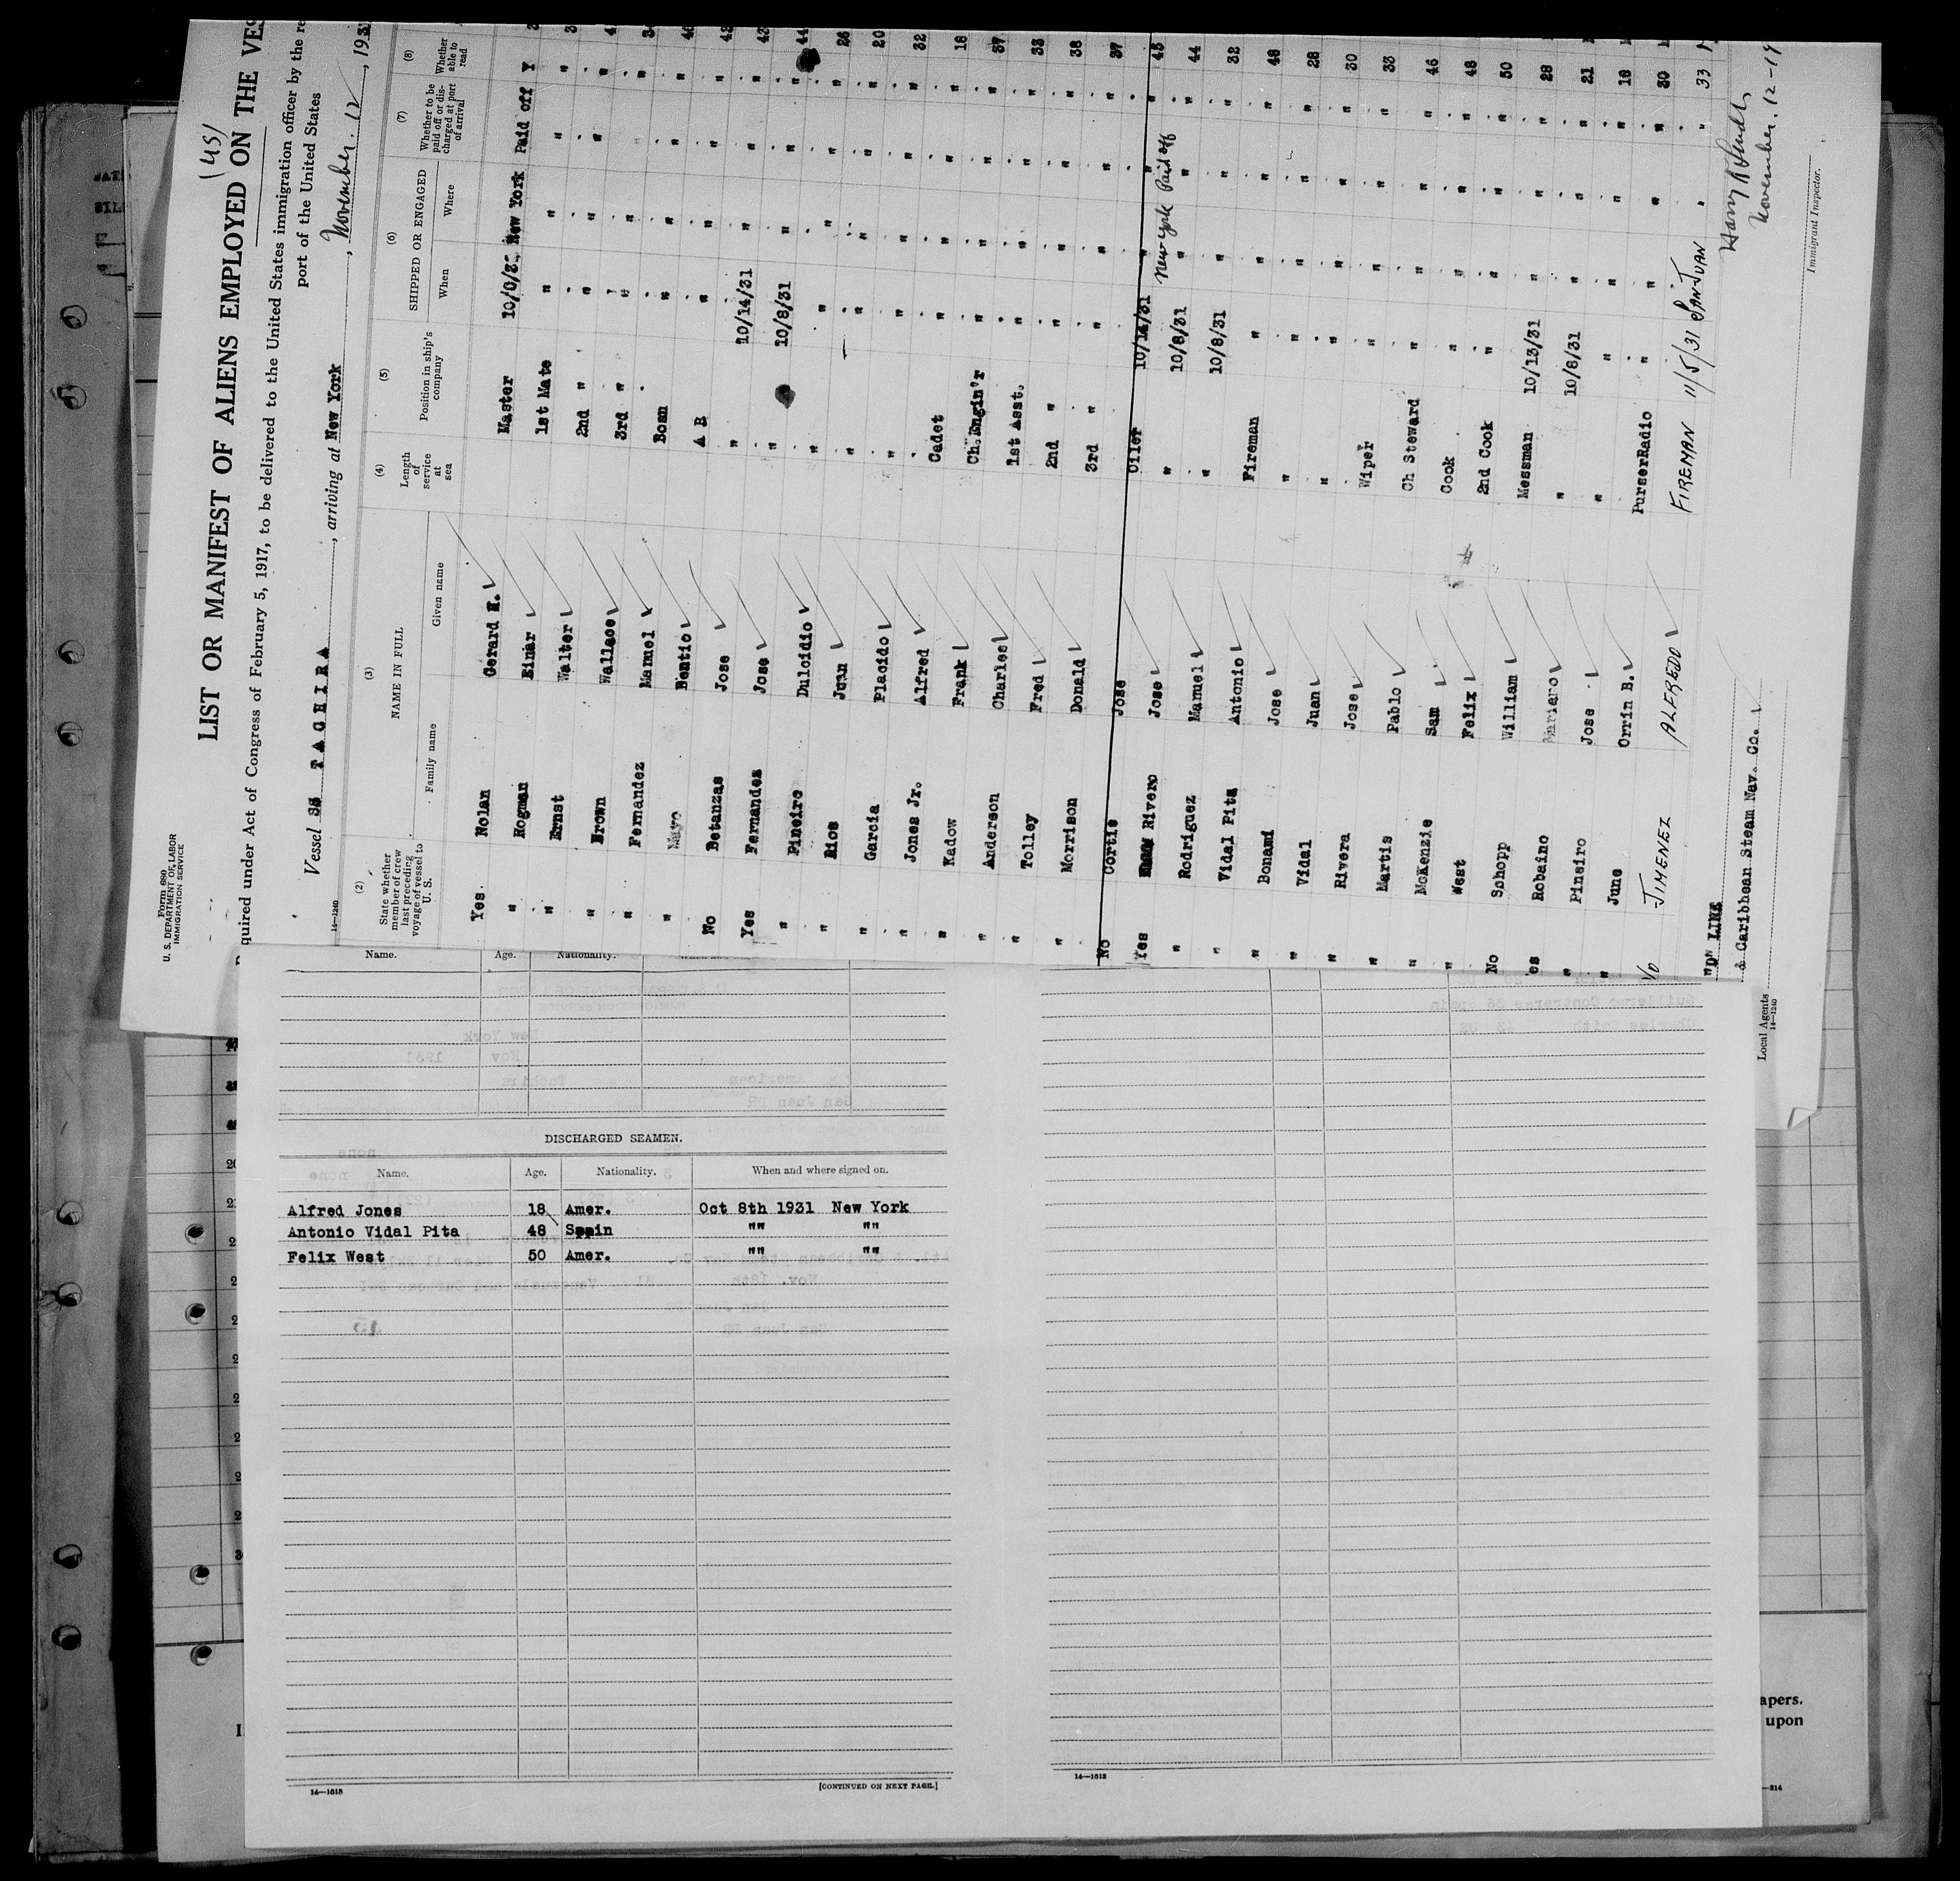 Form 680
U. S. DEPARTMENT OF LABOR
IMMIGRATION SERVICE
(US)
LIST OR MANIFEST OF ALIENS EMPLOYED ON THE VES
quired under Act of Congress of February 5, 1917, to be delivered to the United States immigration officer by the re
port of the United States
Vessel SS TACHIRA, arriving at New York, November 12, 1931
14—1240
(2) (3) (4) (5) (6) (7) (8)
State whether member of crew last preceding voyage of vessel to U. S.
NAME IN FULL
Family name Given name
Length of service at sea
Position in ship's company
SHIPPED OR ENGAGED
When Where
Whether to be paid off or discharged at port of arrival
Whether able to read
Yes Nolan Gerard Master New York Paid off Y
" Hogman Einar 1st Mate " " " "
" Ernst Walter 2nd " " " " "
" Brown Wallace 3rd " " " " "
" Fernandez Manuel Bosn " " " "
" Mayo Bentio A B " " " "
No Betanzas Jose " 10/14/31 " " "
Yes Fernandez Jose " 10/8/31 " " "
" Pineiro Dulcidio " " " " "
" Rios Juan " " " " "
" Garcia Placido " " " " "
" Jones Jr. Alfred Cadet " " " "
" Kadow Frank Ch. Engin'r " " " "
" Anderson Charles 1st Asst. " " " "
" Tolley Fred 2nd " " " " "
" Morrison Donald 3rd " " " " "
No Cortis Jose Oiler 10/14/31 " " "
Yes Rivero Jose " 10/8/31 New York Paid off "
" Rodriguez Manuel " 10/8/31 " " "
" Vidal Pita Antonio Fireman " " " "
" Bonami Jose " " " " "
" Vidal Juan " " " " "
" Rivera Jose Wiper " " " "
" Martis Pablo Ch Steward " " " "
" McKenzie Sam Cook " " " "
" West Felix 2nd Cook " " " "
No Schopp William Messman 10/13/31 " " "
es Robaino Mariano " 10/8/31 " " "
" Pinsiro Jose " " " " "
" June Orrin B. PurserRadio " " " "
No JIMENEZ ALFREDO FIREMAN 11/5/31 SAN JUAN " "
44
26
20
32
18
37
33
38
37
45
44
32
48
28
30
33
46
48
50
28
21
18
30
33
"D" LINE
& Caribbean Steam Nav. Co.
Local Agents
14—1240
November. 12-19
Immigrant Inspector.
Name. Age. Nationality.
DISCHARGED SEAMEN.
Name. Age. Nationality. When and where signed on.
Alfred Jones 18 Amer. Oct 8th 1931 New York
Antonio Vidal Pita 48 Spain "" ""
Felix West 50 Amer. "" ""
14—1618
[CONTINUED ON NEXT PAGE.]
14—1618
apers.
upon
—214